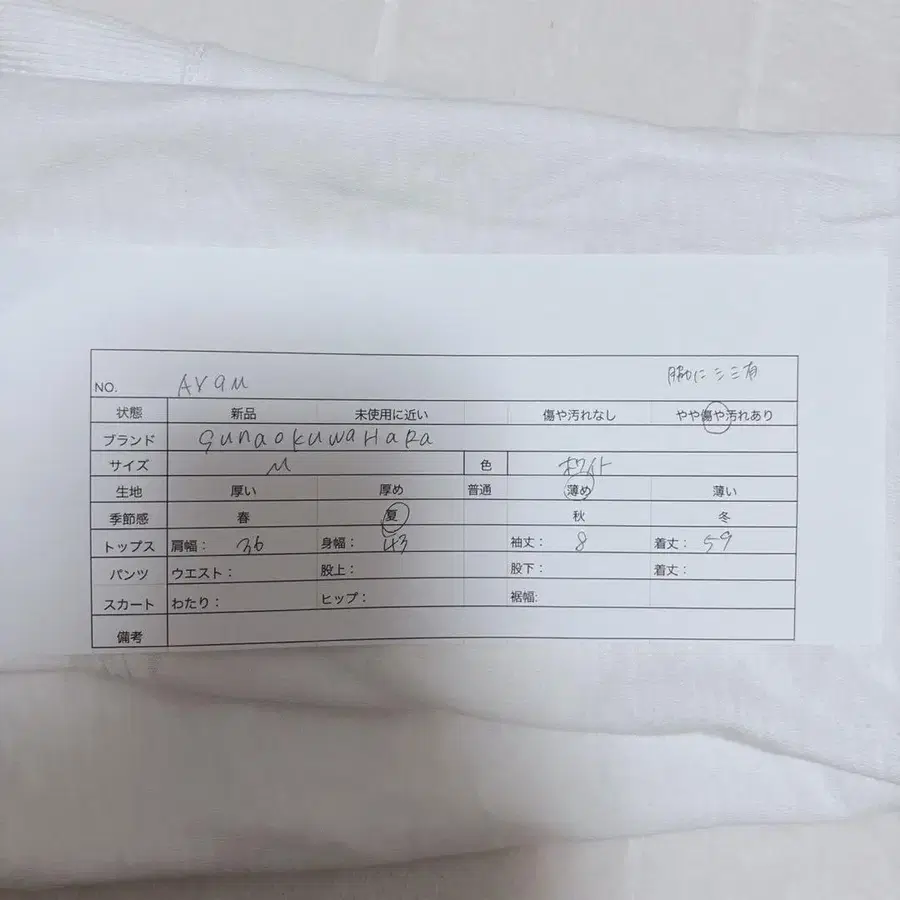 NO. AY9M 脇にシミ有
状態 新品 未使用に近い 傷や汚れなし やや傷や汚れあり
ブランド SunaoKuwaHara
サイズ M 色 ホワイト
生地 厚い 厚め 普通 薄め 薄い
季節感 春 夏 秋 冬
トップス 肩幅： 36 身幅： 43 袖丈： 8 着丈： 59
パンツ ウエスト： 股上： 股下： 着丈：
スカート わたり： ヒップ： 裾幅:
備考